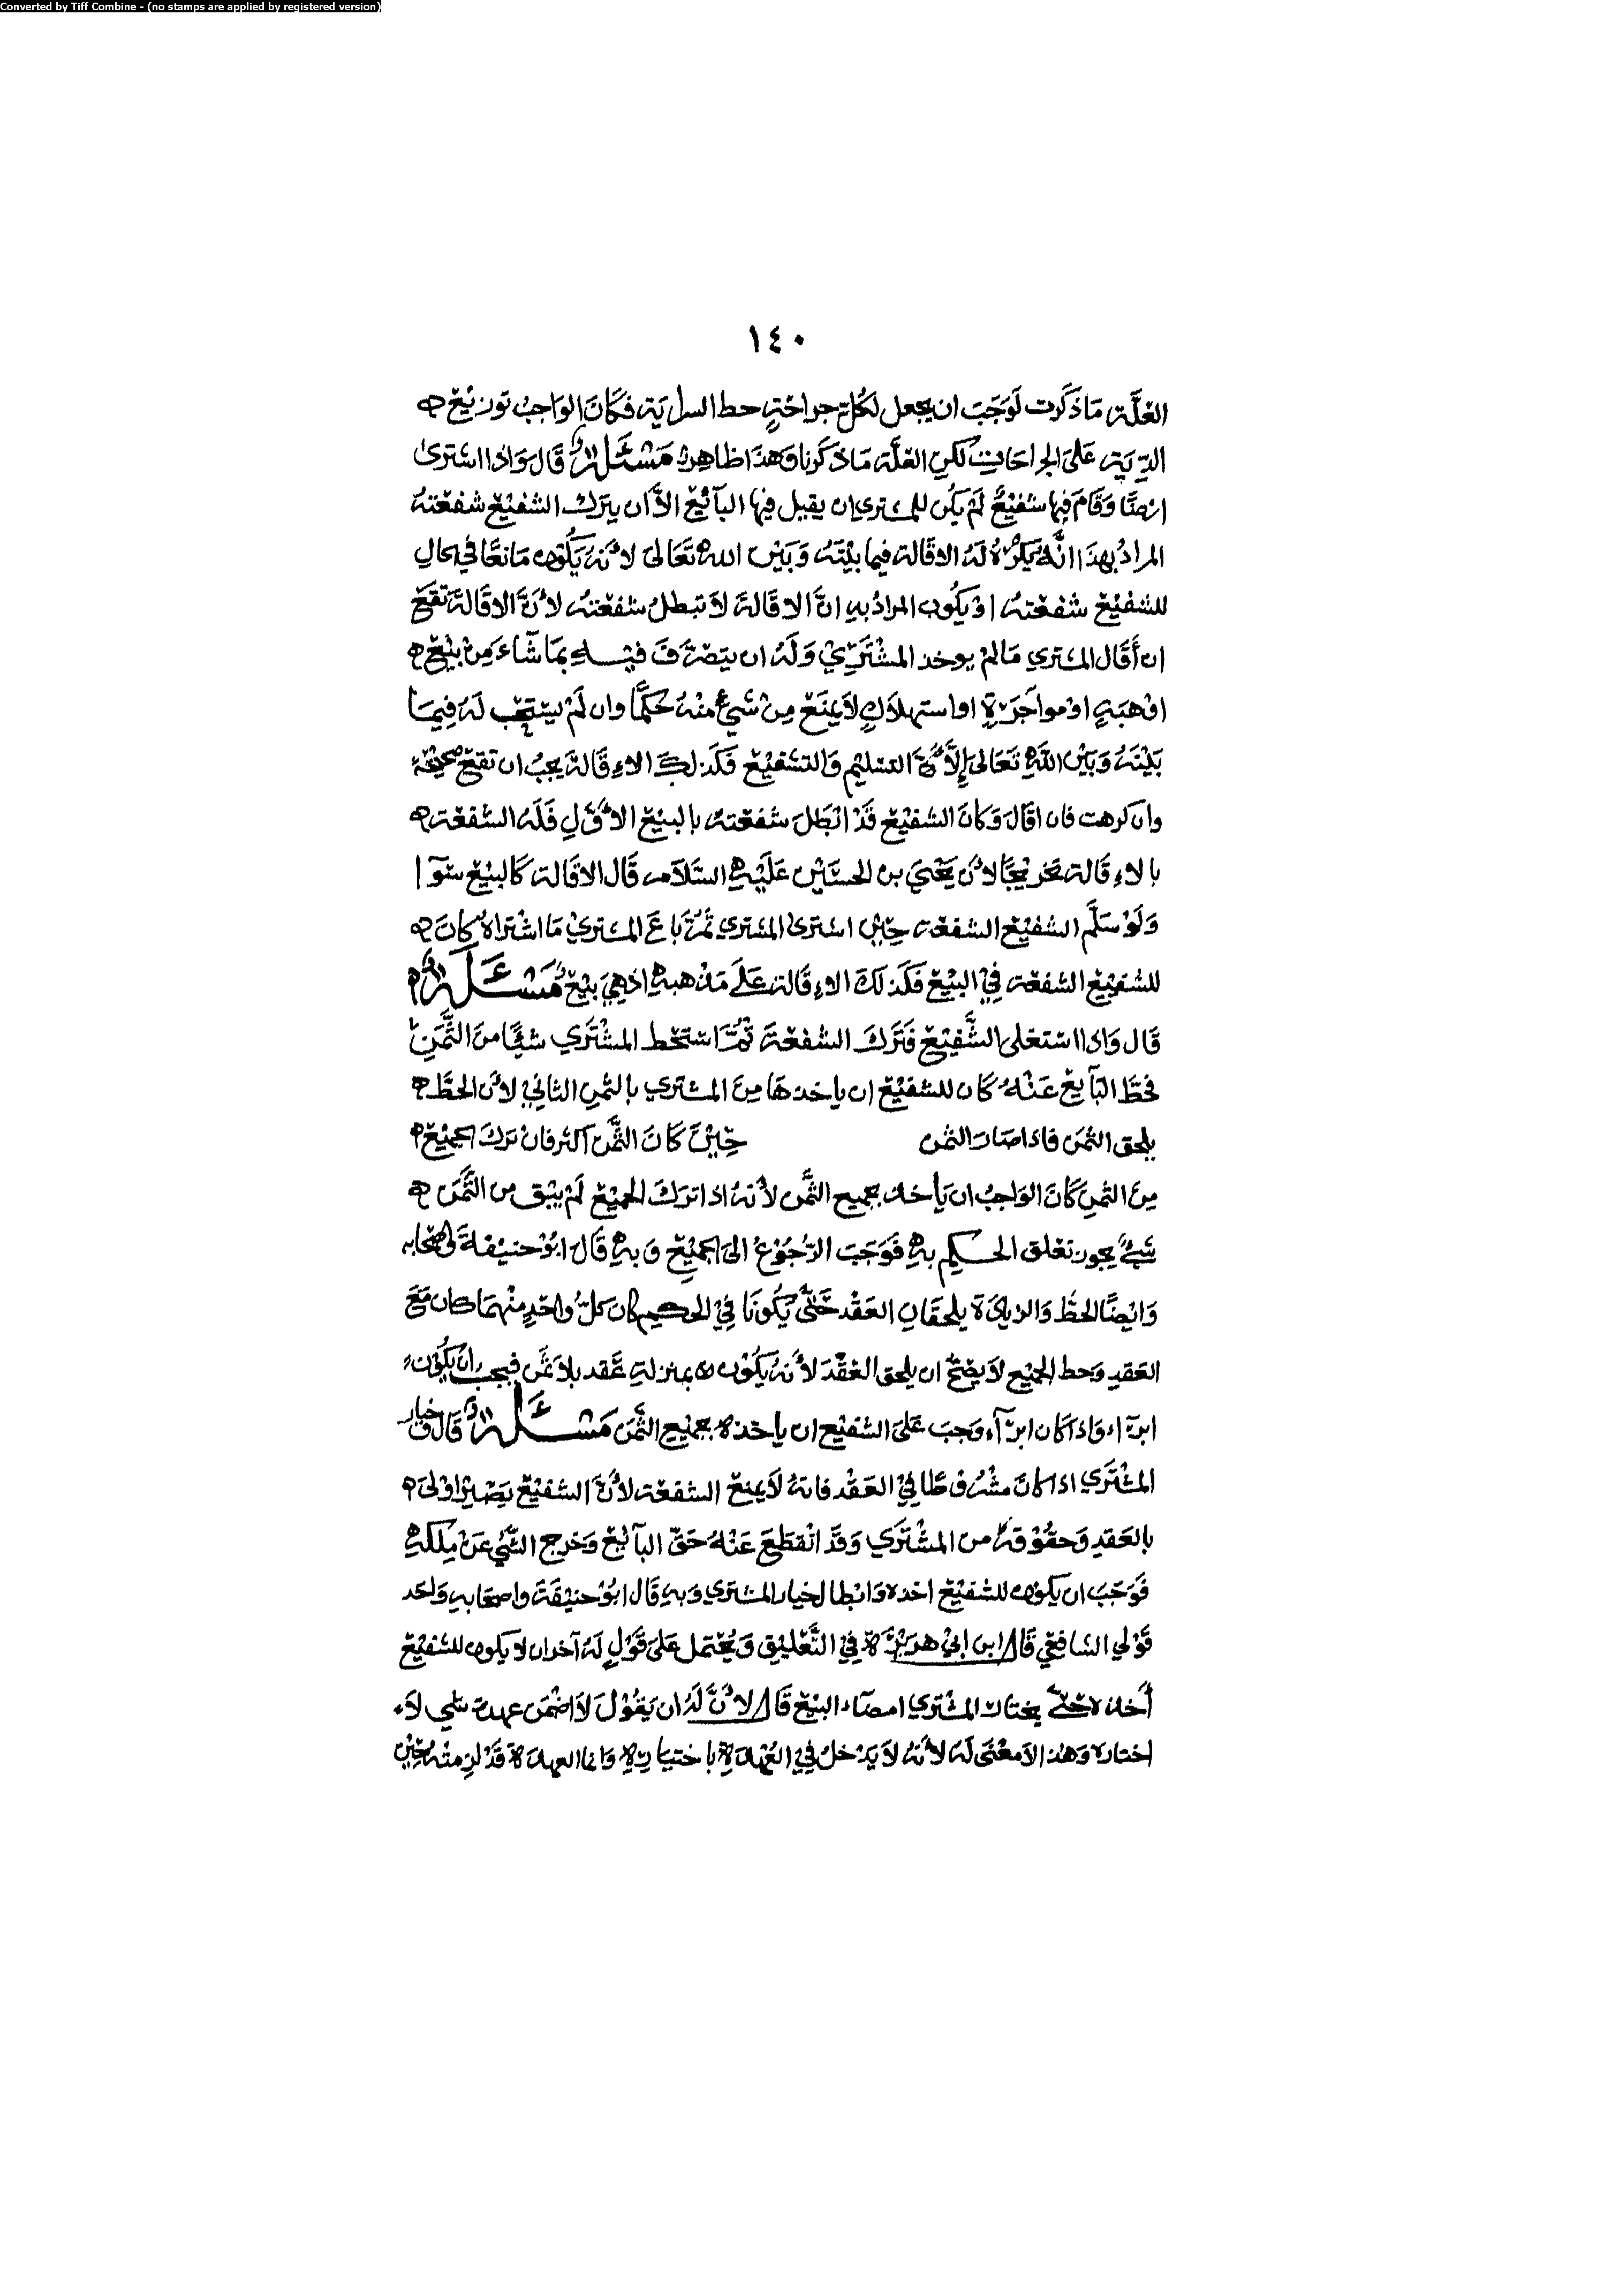 Converted by Tiff Combine - (no stamps are applied by registered version)
١٤٠
العلَّة مَا ذكَرت لَوَجَبَ ان يجعل لكُلّ جراحَةٍ حط السراية فكَانَ الوَاجبُ توزيْعْ
الدِّيَة عَلىَ الجراحَات لكن العلَّة مَا ذكَرنا وَهذَا ظاهِر مَسْئَلة قَالَ وَاذا اشترىٰ
ارْضًا وَقَامَ فيها شفيْعٌ لَمْ يكُن للمشتري ان يقيل فيها البآئِع الاَّ ان يترك الشفيْع شفعْتهُ
المرادُ بهذَا انَّهُ يكرهُ لَهُ الاقالة فيما بيْنَهُ وَبَيْن اللهِ تَعَالىَ لأنهُ يَكُون مَانعًا في حالِ
للشفيْع شفعْتهُ اوْ يكُون المرادُ بهِ انَّ الاقَالةَ لاَ تبطلُ شفعْتهُ لأنَّ الاقَالةَ تقعْ
ان أقَال المشتري مَا لمْ يوخذ المشْتَرِيْ وَلَهُ ان يتصَرَفَ فيْهِ بمَا شآءَ مِنْ بَيْعٍ
اوْ هبَةٍ اوْ موآجَرَةٍ او استهلاَكٍ لاَ يمنَعْ مِنْ شيءٍ منْهُ حُكمًا وان لَمْ يستحب لَهُ فِيمَا
بَيْنَهُ وَبَيْن اللهِ تَعَالىَ إلاَّ التسليم وَالتشفيْعْ فكَذلكَ الاءقَالة يجبُ ان تقعْ صحيْحَة
وان كرهت فان اقَالَ وَكانَ الشفيْع قَدْ ابْطَلَ شفعْتهُ بالبيْعْ الأوّلِ فَلَهُ الشفعْة
بالاءقَالة تخريْجًا لأن يَحْيىَ بن الحسَيْن عَلَيْهِ السَّلاَم قَال الاقَالة كَالبيْعْ سَوَآ
وَلَوْ سَلَّم الشفيْع الشفعْة حيْن اشترىٰ المشتري ثمَّ بَاعَ المشتريْ مَا اشتراهُ كانَ
للشفيْع الشفعْة فيْ البيْعْ فكَذلكَ الاءقَالة عَلىَ مَذهبهِ اذ هِيَ بيْعٌ مَسْئَلة
قَال وَاذا اسْتغلى الشَّفِيْع فَتَرَكَ الشفعْةَ ثمَّ اسْتحط المشْتَرَي شيئًا منَ الثَّمَنِ
فحَطَّ البَآيعْ عَنْهُ كَان للشفيْع ان ياخذهَا مِنَ المشتري بالثمنِ الثاني لأن الحَطَّ
يلحق الثمنَ فاذا صَارَ الثمن حِيْنَ كَانَ الثَّمن آكثر فان تركَ الجميْعْ
مِنَ الثمنِ كَانَ الوَاجبُ ان يأخذَ بجميع الثَّمن لأنهُ اذا تركَ الجميْعْ لَمْ يبْق من الثَّمَن
شَيْءٌ يجوز تعْلق الحكْم بهِ فَوَجَبَ الرُّجُوْعُ الىَ الجميْعْ وَبهِ قَالَ ابُوْ حنيْفَةَ وَاصْحَابه
وَايْضًا الحَطُّ وَالزيادَة يلحقَانِ العَقْد حَتىٰ يكُوْنَا فيْ الحكْم كان كلَّ وَاحِدٍ منْهمَا كان مَعَ
العَقدِ وَحط الجميْع لاَ يَصحُّ ان يلحق العَقْدَ لأنهُ يَكُوْن بمنزلةِ عَقد بلاَ ثمَن فيجب ان يَكُوْن
ابرآء وَاذا كَان ابرآء وَجبَ عَلىَ الشفيْعِ ان ياخذه بجميْعِ الثَّمَن مَسْئَلة قَالَ وَخيار
المشْتَري اذا كَانَ مشْرُوْطًا فيْ العَقْد فانهُ لاَ يمنَعْ الشفعَة لأنَّ الشفيْعْ يَصِيْر اوْلىَ
بالعَقدِ وَحقُوْقهِ من المشْتَرَي وَقَد انْقطَعَ عَنْهُ حَقّ البآئعْ وَخرج الشَّيْ عَنْ مِلكهِ
فَوَجَبَ ان يكون للشفيْعْ اخذه وَابطال خيار المشتري وَبهِ قَال ابُوْ حنيْفَةَ واصحَابهِ وَاحَد
قَوْلي الشافعيْ قَال ابن ابيْ هرَيْرَة فيْ التَّعْليْق وَيُحْتمل عَلىَ قَوْلٍ لَهُ آخر ان لا يكون للشفيْعْ
أخذه حَتىَّ يختار المشْتري امضآء البَيْعْ قَال لأنَّ لَهُ ان يَقُوْلَ لاَ اضْمَن عهدة شيْ لاَ
اختاره وَهذا لاَ معْنَى لَهُ لأنهُ لاَ يَدْخلُ فيْ العُهدَةِ باختياره وَانما العهدَة قَدْ لزمتْهُ حِيْن